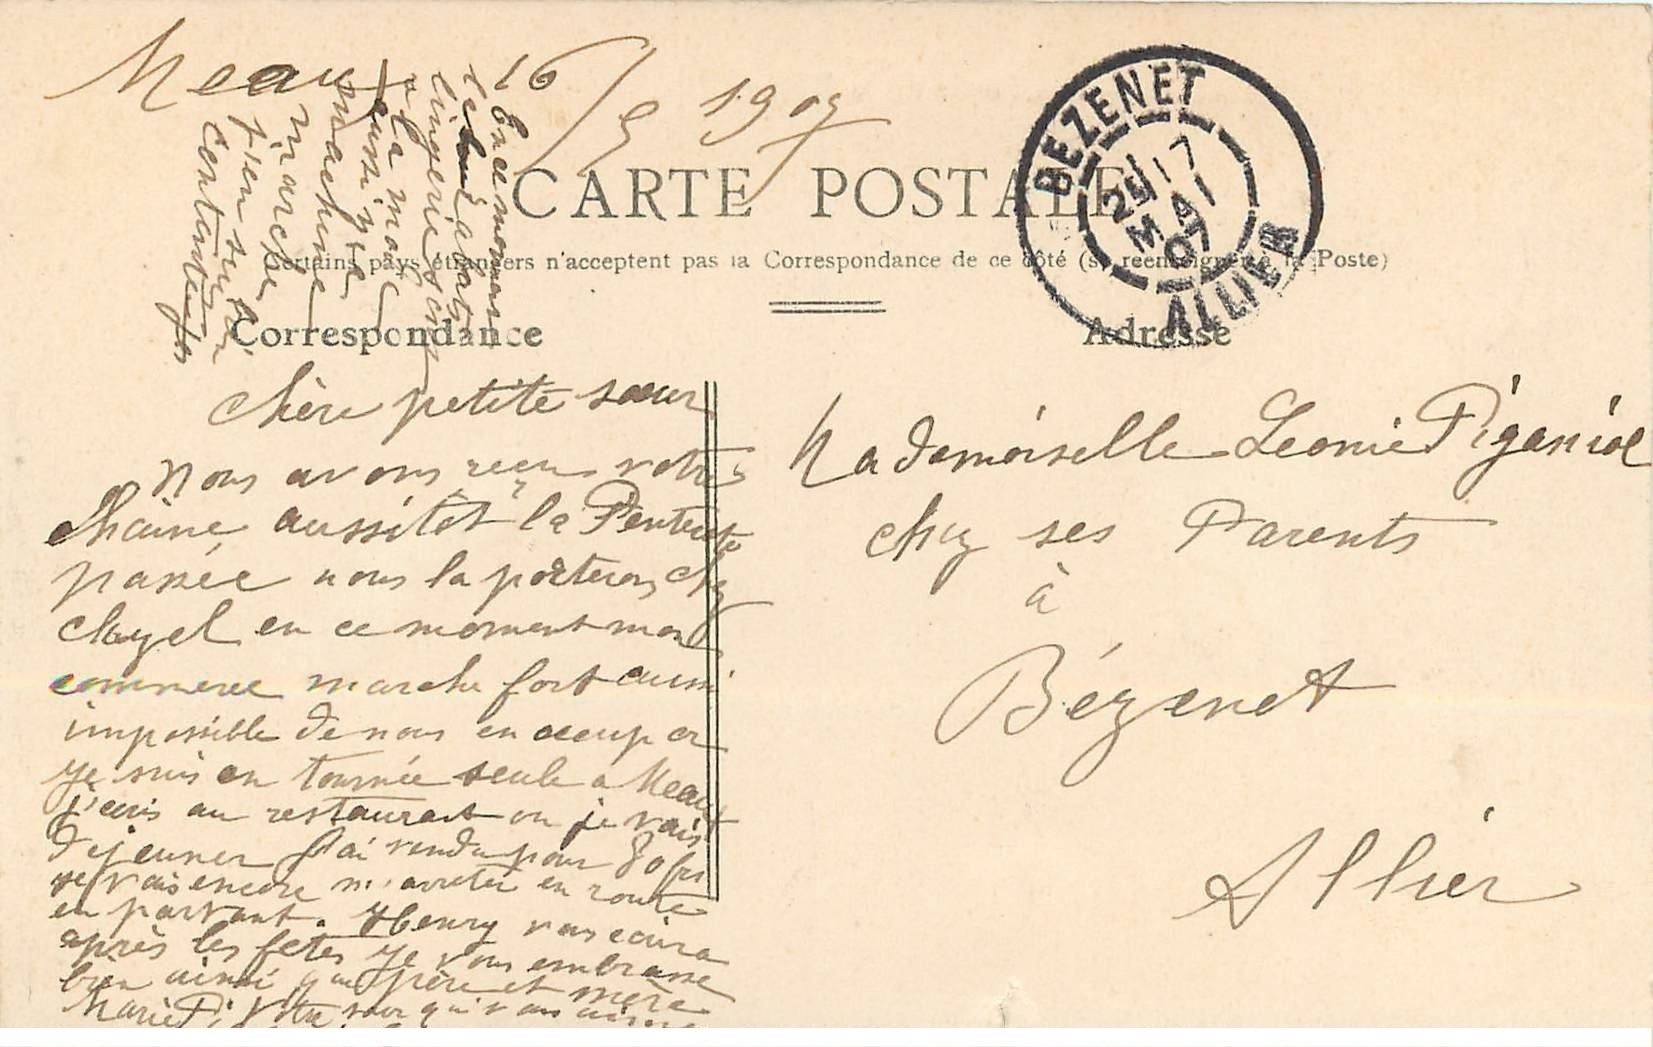 Meaux 16/5 1907
CARTE POSTALE
Certains pays étrangers n'acceptent pas la Correspondance de ce côté (se renseigner à la Poste)
Correspondance
Adresse
BEZENET
17
MAI
07
ALLIER
chère petite sœur
Nous avons reçu votre
chaine aussitôt la Pentecote
passée nous la porterons chez
en ce moment mon
commerce marche fort aussi
impossible de nous en occuper
je suis en tournée seule a Meaux
j'ecris au restaurant ou je vais
dejeuner j'ai vendu pour 80 frs
je vais encore m'arreter en route
en partant. Henry vous ecrira
après les fetes je vous embrasse
bien ainsi que père et mère
Marie P. Votre sœur qui vous aime
En ce moment
lingerie sont
a la mode
aussi
machine
marche
j'en suis
contente
Mademoiselle Leonie Piganiol
chez ses Parents
à
Bézenet
Allier